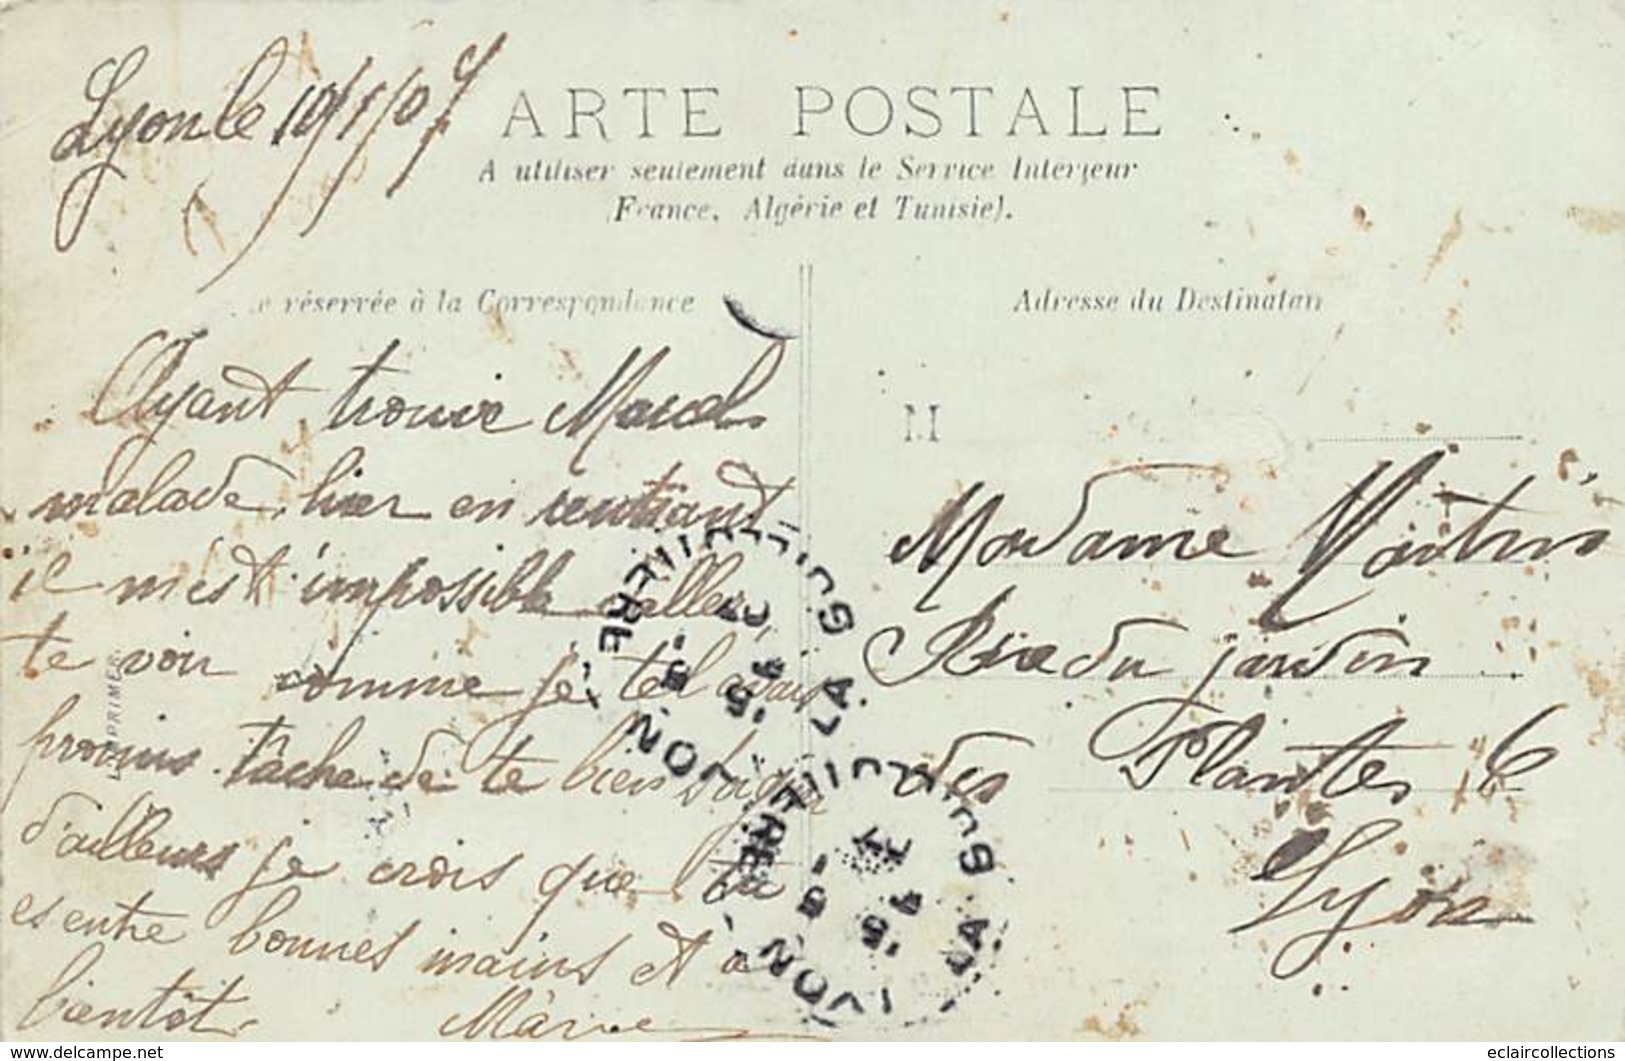 Lyon le 19/1/07
ARTE POSTALE
A utiliser seulement dans le Service Intérieur
(France, Algérie et Tunisie).
e réservée à la Correspondance
Adresse du Destinatair
Ayant trouvé Marcel
malade hier en rentrant
il m'est impossible d'aller
te voir comme je te l'avais
promis tâche de te bien soigner
d'ailleurs je crois que tu
es entre bonnes mains et à
bientôt
M
Madame Martin
Rue du jardin
des Plantes 6
Lyon
LYON LA GUILLOTIERE
LYON LA GUILLOTIERE
IMPRIMER
www.delcampe.net
eclaircollections